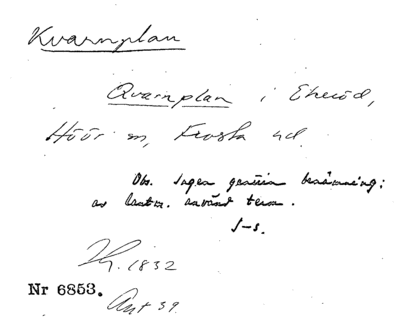 Kvarnplan
Qvarnplan i Ekeröd,
Höör sn, Frosta hd.
Obs. Ingen genuin benämning;
av lantm. använd term.
J-s.
1832
Nr 6853.
Ant 39.